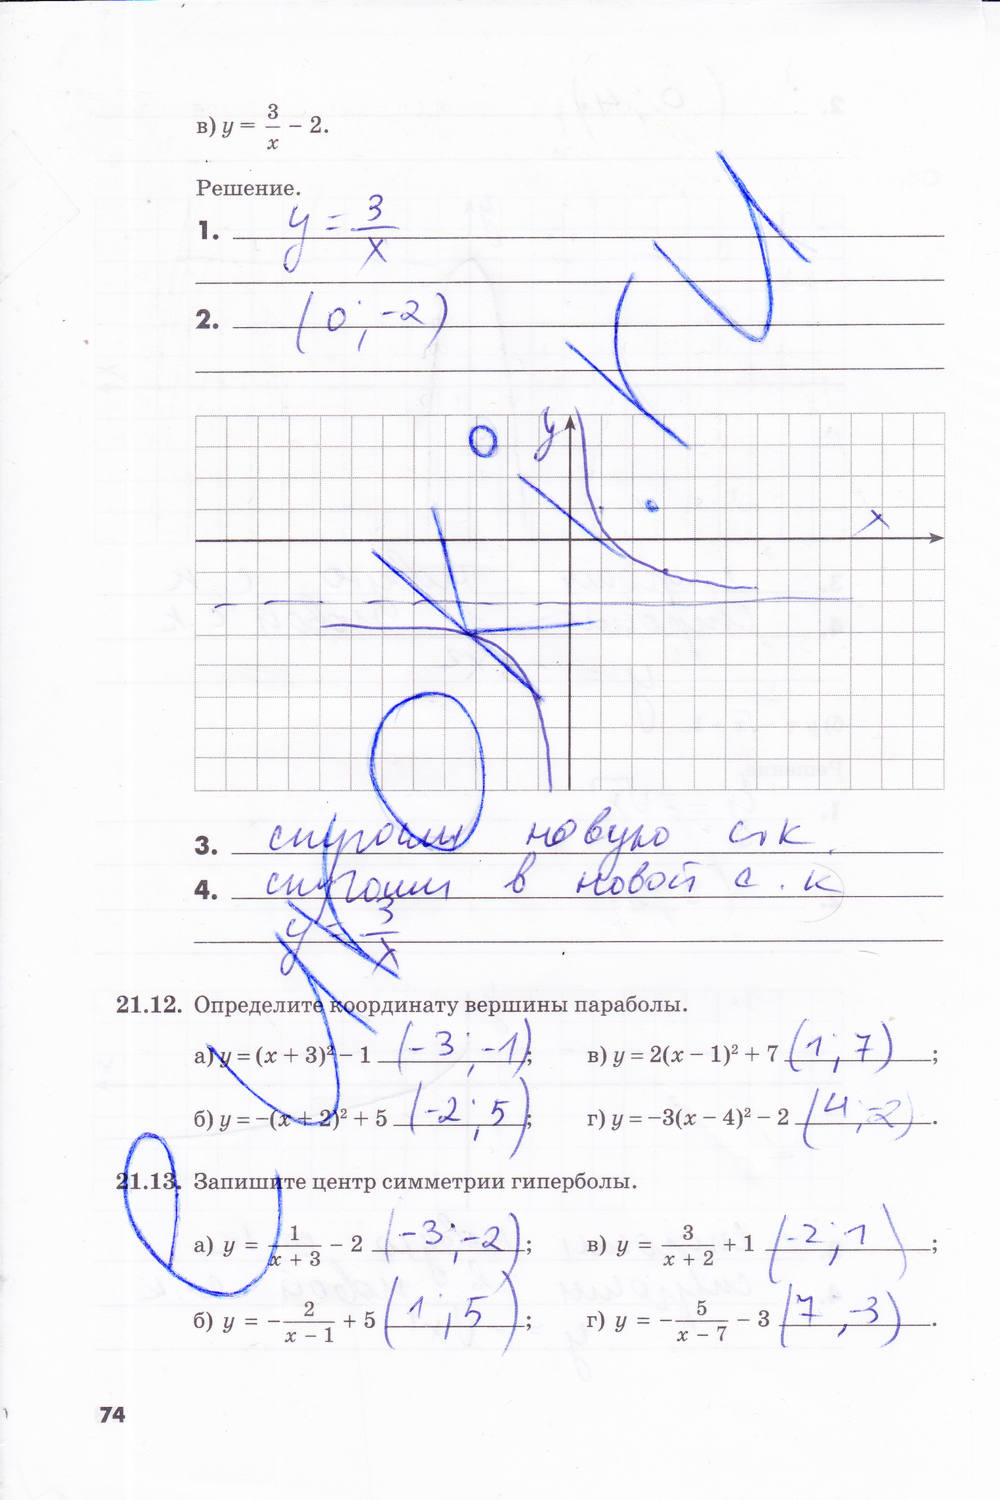 в) y = 3/x − 2.
Решение.
1. y = 3/x
2. (0; -2)
y
x
3. строим новую с.к.
4. строим в новой с.к
y = 3/x
21.12. Определите координату вершины параболы.
а) y = (x + 3)² − 1 (-3; -1);
в) y = 2(x − 1)² + 7 (1; 7);
б) y = −(x + 2)² + 5 (-2; 5);
г) y = −3(x − 4)² − 2 (4; -2).
21.13. Запишите центр симметрии гиперболы.
а) y = 1/(x + 3) − 2 (-3; -2);
в) y = 3/(x + 2) + 1 (-2; 1);
б) y = −2/(x − 1) + 5 (1; 5);
г) y = −5/(x − 7) − 3 (7, -3).
74